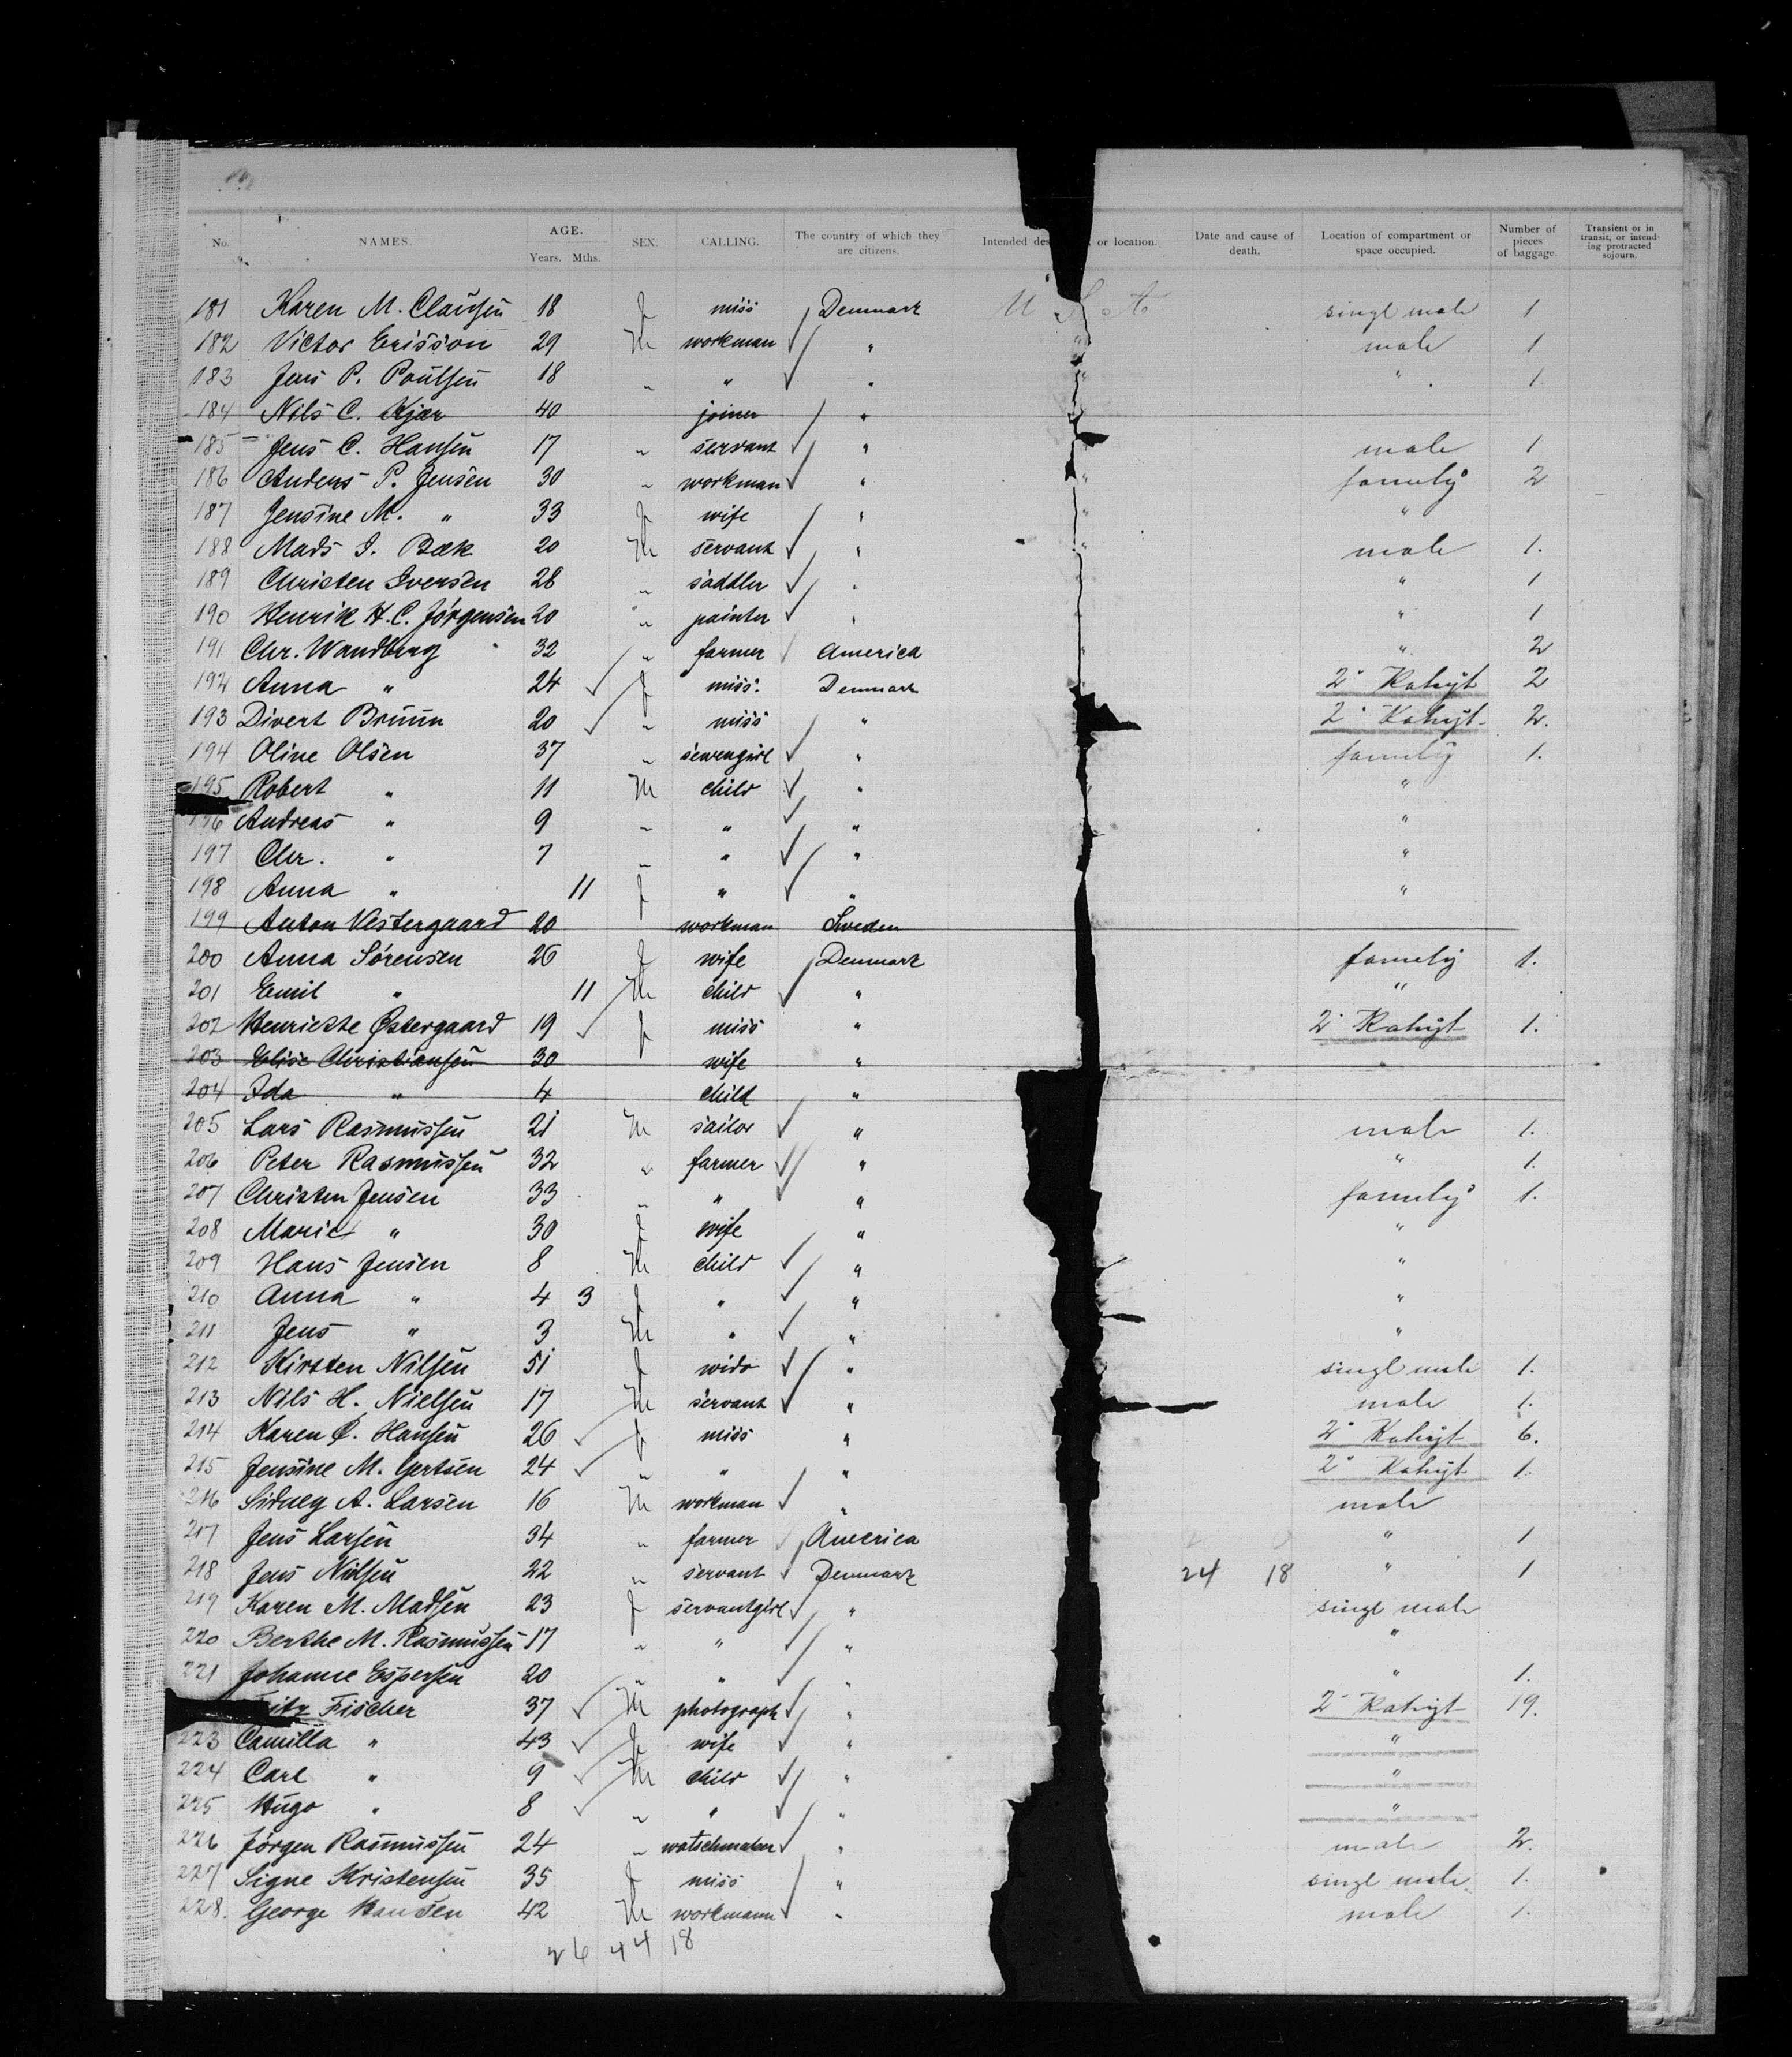 No. NAMES. AGE. Years. Mths. SEX. CALLING. The country of which they are citizens. Intended des or location. Date and cause of death. Location of compartment or space occupied. Number of pieces of baggage. Transient or in transit, or intending protracted sojourn.
181 Karen M. Clausen 18 f miss Denmark U S A singl male 1
182 Victor Erisson 29 M workman " " male 1
183 Jens P. Poulsen 18 " " " " " 1.
184 Nils C. Kjær 40 joiner "
185 Jens C. Hansen 17 " servant " male 1
186 Anders P. Jensen 30 " workman " " famely 2
187 Jensine M. " 33 f wife " " "
188 Mads J. Bæk 20 M servant " " male 1.
189 Christen Iversen 28 " saddler " " 1
190 Henrik H. C. Jörgensen 20 " painter " " 1
191 Chr. Wandberg 32 " farmer America " " 2
192 Anna " 24 f miss. Denmark 2' Kahyt 2
193 Divert Bruun 20 " miss " 2' Kahyt 2.
194 Oline Olsen 37 " sewengirl " famely 1.
195 Robert " 11 M child " "
196 Andreas " 9 " " " "
197 Chr. " 7 " " " "
198 Anna " 11 f " " "
199 Anton Vestergaard 20 workman Sweden
200 Anna Sörensen 26 f wife Denmark famely 1.
201 Emil " 11 M child " "
202 Henriette Østergaard 19 f miss " 2' Kahyt 1.
203 Elise Christiansen 30 wife "
204 Ida " 4 child "
205 Lars Rasmussen 21 M sailor " male 1.
206 Peter Rasmussen 32 " farmer " " 1.
207 Christen Jensen 33 " " " famely 1.
208 Marie " 30 f wife " "
209 Hans Jensen 8 M child " "
210 Anna " 4 3 f " " "
211 Jens " 3 M " " "
212 Kirsten Nilsen 51 f wido " singl male 1.
213 Nils H. Nielsen 17 M servant " male 1.
214 Karen C. Hansen 26 f miss " 2' Kahyt 6.
215 Jensine M. Gertsen 24 " " " 2' Kahyt 1.
216 A. Larsen 16 M workman " male
217 Jens Larsen 34 " farmer America " 1
218 Jens Nilsen 22 " servant Denmark 24 18 " 1
219 Karen M. Madsen 23 f servantgirl " singl male
220 Berthe M. Rasmussen 17 " " " "
221 Johanne Espersen 20 " " " " 1.
Fischer 37 M photograph " 2' Kahyt 19.
223 Camilla " 43 f wife " "
224 Carl " 9 M child " "
225 Hugo " 8 " " " "
226 Jörgen Rasmussen 24 " watschmaker " male 2.
227 Signe Kristensen 35 f miss " singl male 1.
228. George Hansen 42 M workmann " male 1.
26 44 18